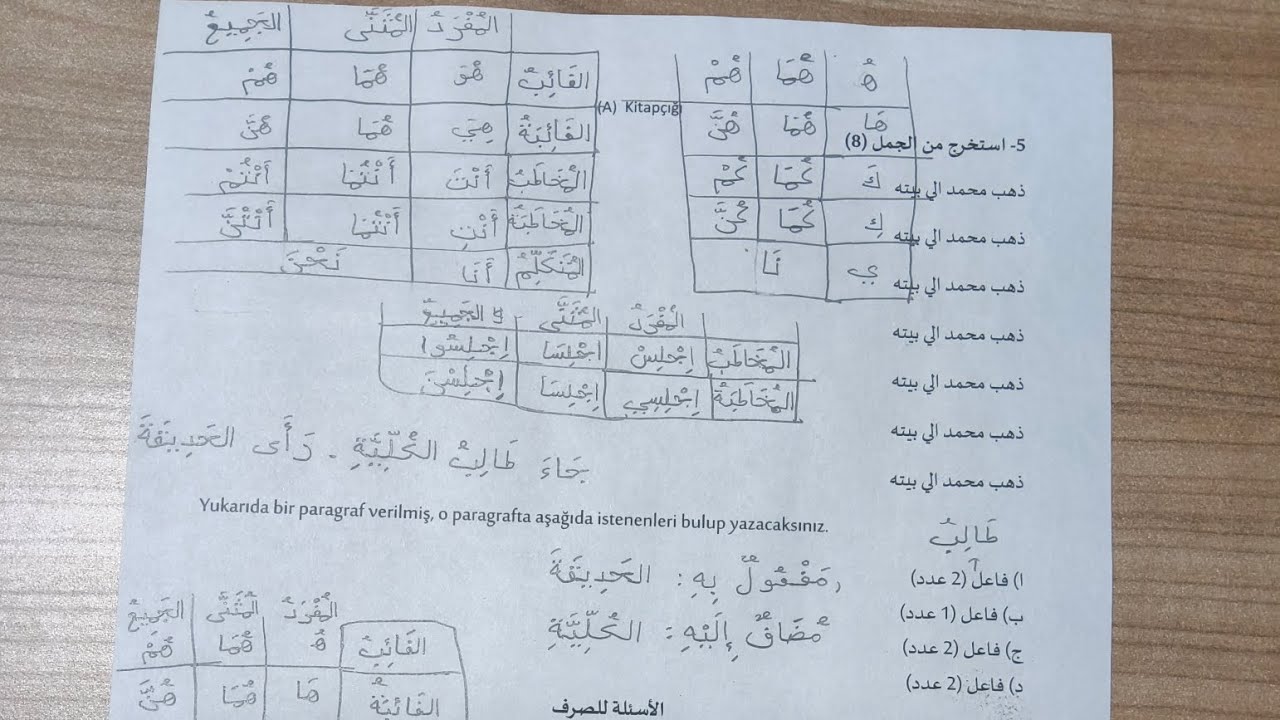 المُفْرَدُ المُثَنَّى الجَمِيعُ
الغَائِبُ هُوَ هُمَا هُمْ
الغَائِبَةُ هِيَ هُمَا هُنَّ
المُخَاطَبُ أَنْتَ أَنْتُمَا أَنْتُمْ
المُخَاطَبَةُ أَنْتِ أَنْتُمَا أَنْتُنَّ
المُتَكَلِّمُ أَنَا نَحْنُ
هُ هُمَا هُمْ
هَا هُمَا هُنَّ
كَ كُمَا كُمْ
كِ كُمَا كُنَّ
ي نَا
(A) Kitapçığ
5- استخرج من الجمل (8)
ذهب محمد الي بيته
ذهب محمد الي بيته
ذهب محمد الي بيته
ذهب محمد الي بيته
ذهب محمد الي بيته
ذهب محمد الي بيته
ذهب محمد الي بيته
المُفْرَدُ المُثَنَّى الجَمِيعُ
المُخَاطَبُ اِجْلِسْ اِجْلِسَا اِجْلِسُوا
المُخَاطَبَةُ اِجْلِسِي اِجْلِسَا اِجْلِسْنَ
جَاءَ طَالِبُ الكُلِّيَّةِ . رَأَى الحَدِيقَةَ
Yukarıda bir paragraf verilmiş, o paragrafta aşağıda istenenleri bulup yazacaksınız.
طَالِبُ
ا) فاعل (2 عدد)
ب) فاعل (1 عدد)
ج) فاعل (2 عدد)
د) فاعل (2 عدد)
مَفْعُولٌ بِهِ : الحَدِيقَةَ
مُضَافٌ إِلَيْهِ : الكُلِّيَّةِ
الأسئلة للصرف
المُفْرَدُ المُثَنَّى الجَمِيعُ
الغَائِبُ هُ هُمَا هُمْ
الغَائِبَةُ هَا هُمَا هُنَّ